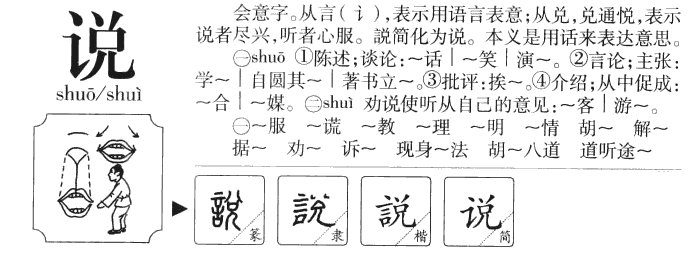 说
shuō/shuì
会意字。从言(讠),表示用语言表意;从兑,兑通悦,表示
说者尽兴,听者心服。説简化为说。本义是用话来表达意思。
㊀shuō ①陈述;谈论:～话｜～笑｜演～。②言论;主张:
学～｜自圆其～｜著书立～。③批评:挨～。④介绍;从中促成:
～合｜～媒。㊁shuì 劝说使听从自己的意见:～客｜游～。
㊀～服 ～谎 ～教 ～理 ～明 ～情 胡～ 解～
据～ 劝～ 诉～ 现身～法 胡～八道 道听途～
説 篆
説 隶
説 楷
说 简